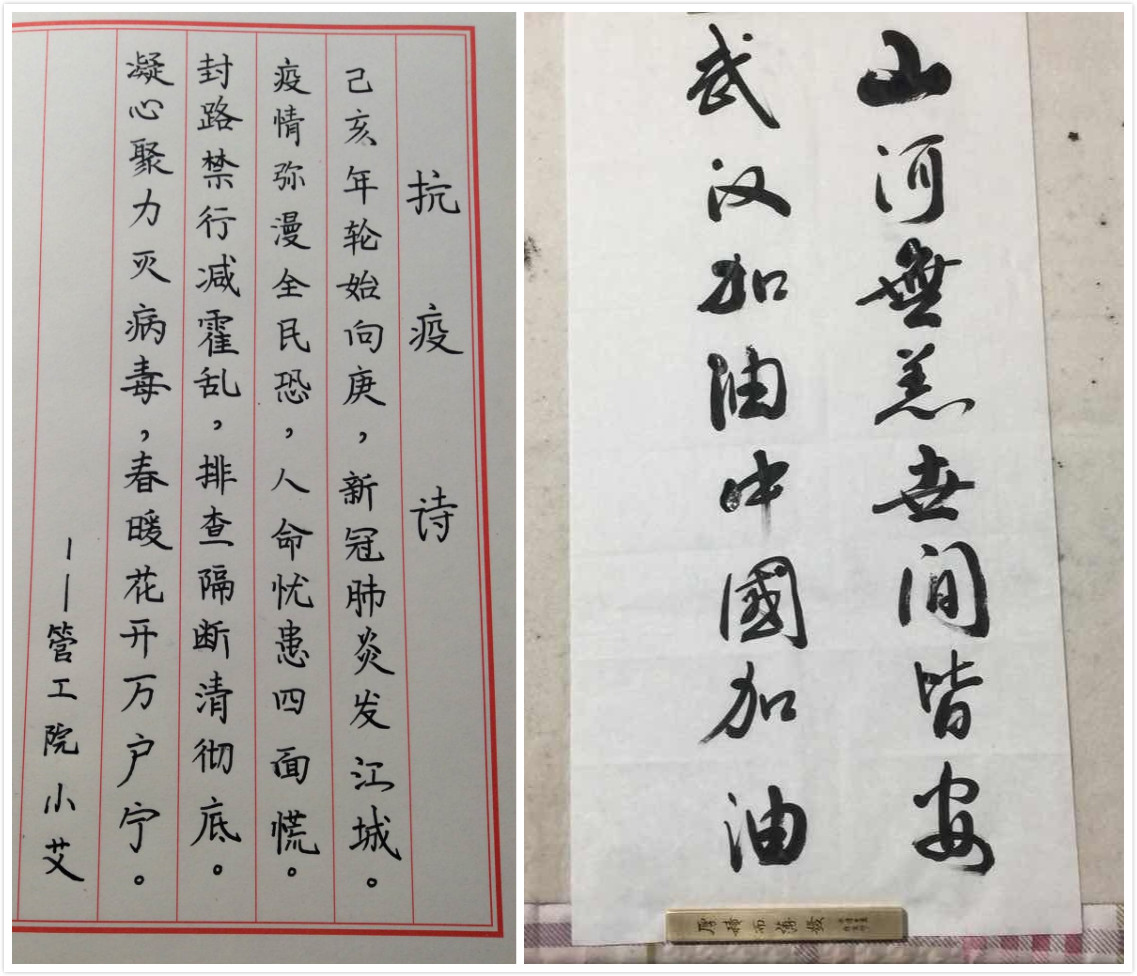 抗疫诗
己亥年轮始向庚，新冠肺炎发江城。
疫情弥漫全民恐，人命忧患四面慌。
封路禁行减霍乱，排查隔断清彻底。
凝心聚力灭病毒，春暖花开万户宁。
——管工院小艾
山河無恙世间皆安
武汉加油中國加油
厚积而薄发